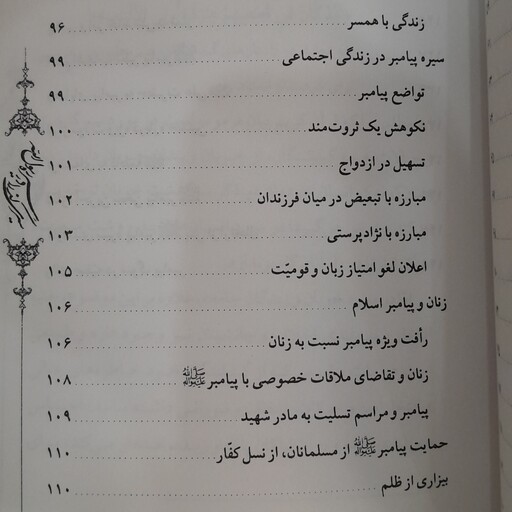 زندگی با همسر ........ ۹۶
سیره پیامبر در زندگی اجتماعی ........ ۹۹
تواضع پیامبر ........ ۹۹
نکوهش یک ثروت‌مند ........ ۱۰۰
تسهیل در ازدواج ........ ۱۰۱
مبارزه با تبعیض در میان فرزندان ........ ۱۰۲
مبارزه با نژادپرستی ........ ۱۰۳
اعلان لغو امتیاز زبان و قومیّت ........ ۱۰۵
زنان و پیامبر اسلام ........ ۱۰۶
رأفت ویژه پیامبر نسبت به زنان ........ ۱۰۶
زنان و تقاضای ملاقات خصوصی با پیامبر ﷺ ........ ۱۰۸
پیامبر و مراسم تسلیت به مادر شهید ........ ۱۰۹
حمایت پیامبر ﷺ از مسلمانان، از نسل کفّار ........ ۱۱۰
بیزاری از ظلم ........ ۱۱۰